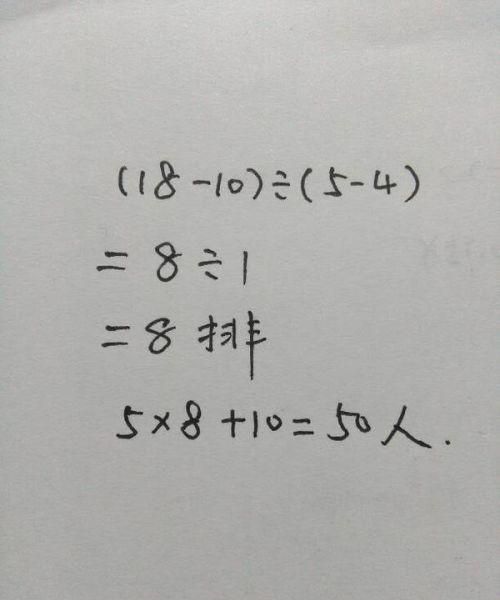 (18-10)÷(5-4)
=8÷1
=8排
5×8+10=50人.